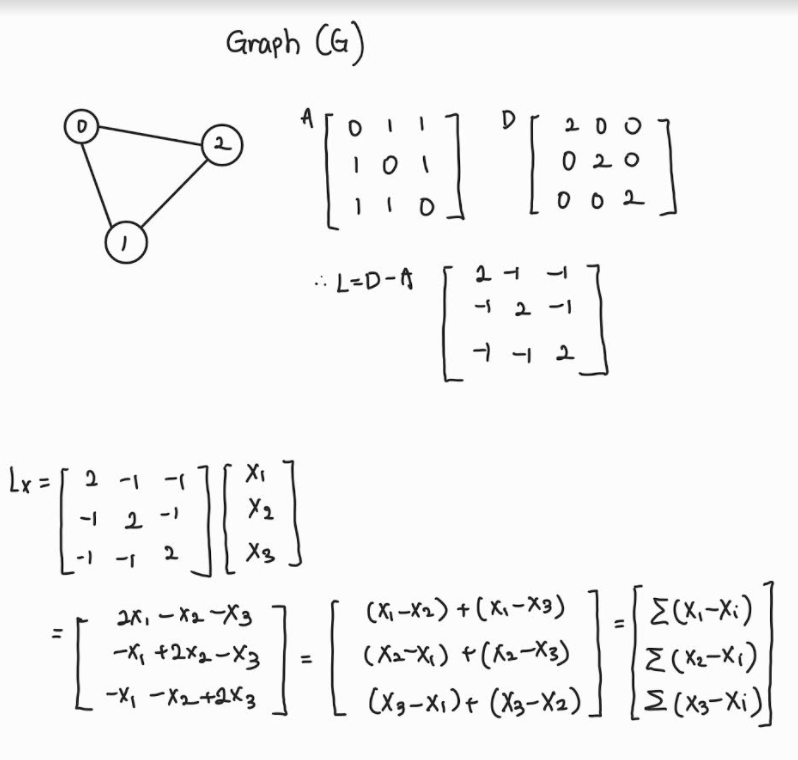 Graph (G)
0
2
1
A [ 0 1 1
1 0 1
1 1 0 ]
D [ 2 0 0
0 2 0
0 0 2 ]
∴ L=D-A [ 2 -1 -1
-1 2 -1
-1 -1 2 ]
Lx = [ 2 -1 -1
-1 2 -1
-1 -1 2 ]
[ x1
x2
x3 ]
= [ 2x1 - x2 - x3
-x1 + 2x2 - x3
-x1 - x2 + 2x3 ]
= [ (x1-x2) + (x1-x3)
(x2-x1) + (x2-x3)
(x3-x1) + (x3-x2) ]
= [ Σ(x1-xi)
Σ(x2-xi)
Σ(x3-xi) ]